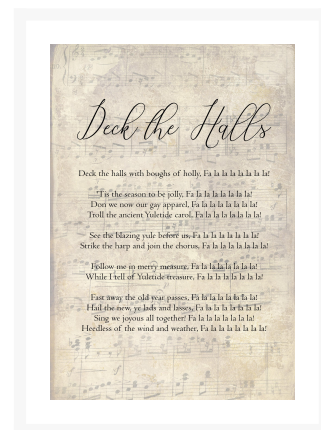 Deck the Halls
Deck the halls with boughs of holly, Fa la la la la la la la!
'Tis the season to be jolly, Fa la la la la la la!
Don we now our gay apparel, Fa la la la la la la!
Troll the ancient Yuletide carol, Fa la la la la la la!
See the blazing yule before us, Fa la la la la la la!
Strike the harp and join the chorus, Fa la la la la la la!
Follow me in merry measure, Fa la la la la la la!
While I tell of Yuletide treasure, Fa la la la la la la!
Fast away the old year passes, Fa la la la la la la!
Hail the new, ye lads and lasses, Fa la la la la la la!
Sing we joyous all together! Fa la la la la la la!
Heedless of the wind and weather, Fa la la la la la la!